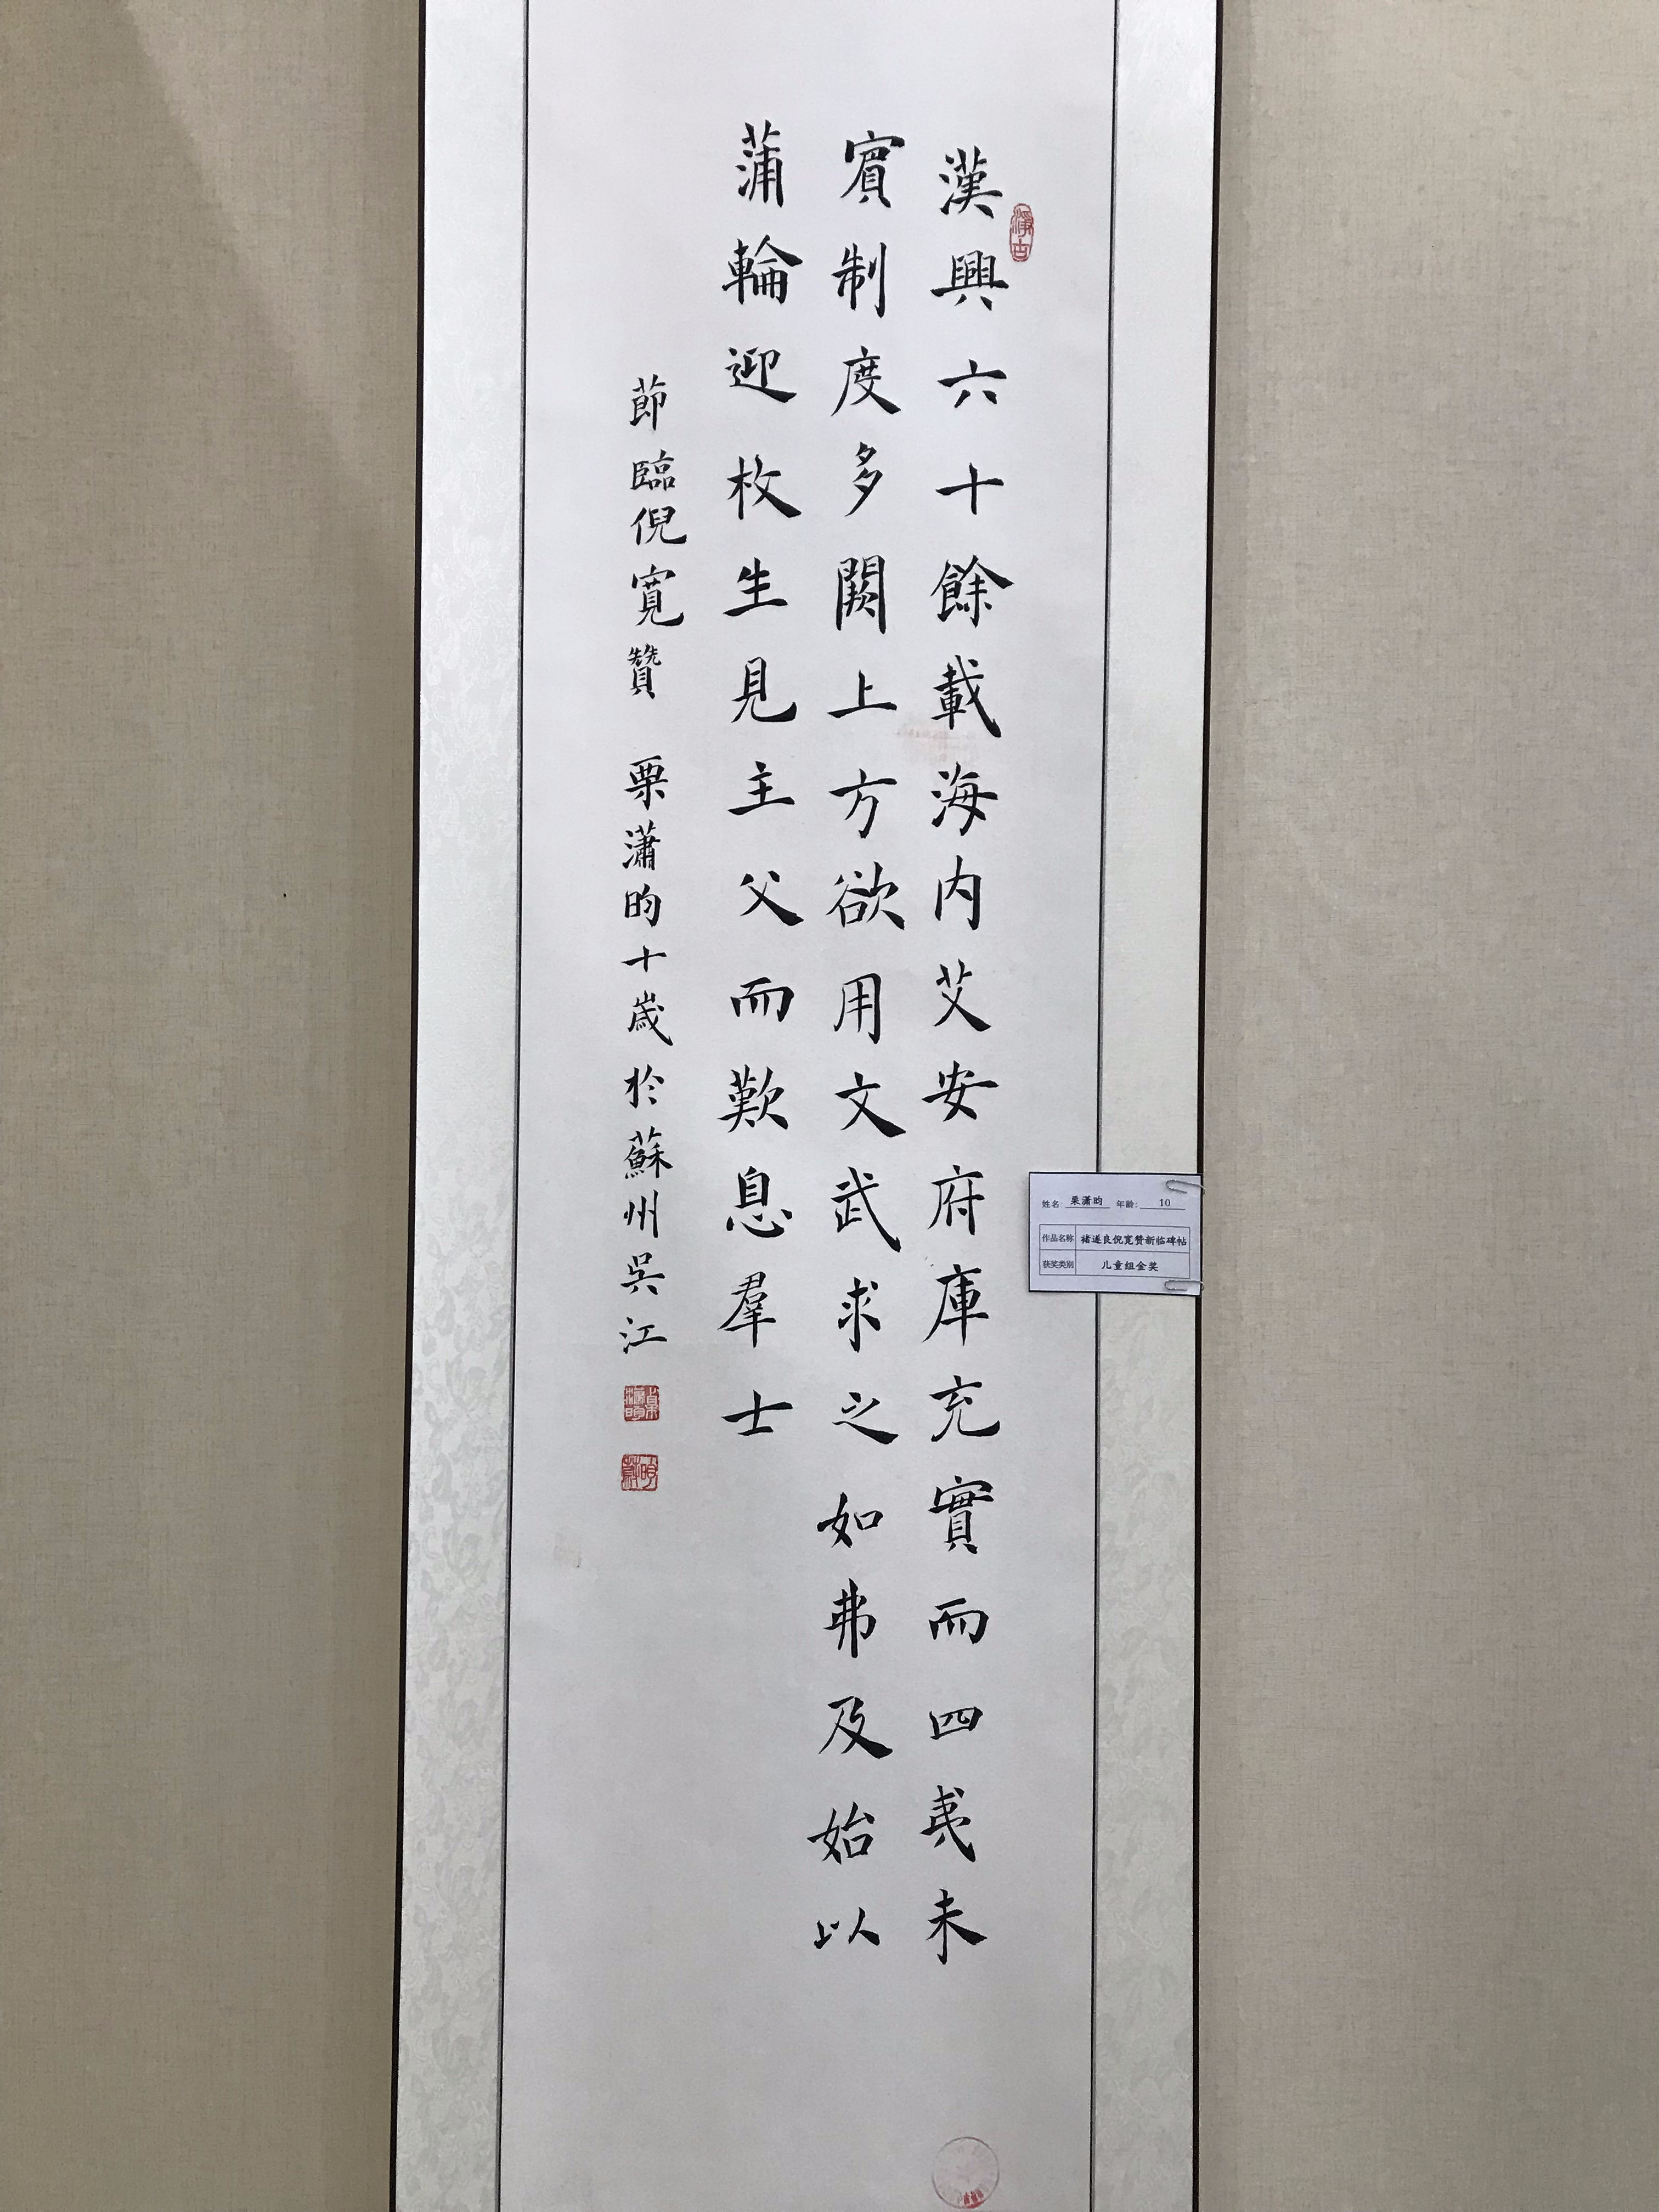 漢興六十餘載海内艾安府庫充實而四夷未
賓制度多闕上方欲用文武求之如弗及始以
蒲輪迎枚生見主父而歎息羣士
節臨倪寬贊 栗瀟昀十歲於蘇州吳江
姓名: 栗潇昀 年龄: 10
作品名称 褚遂良倪宽赞新临碑帖
获奖类别 儿童组金奖